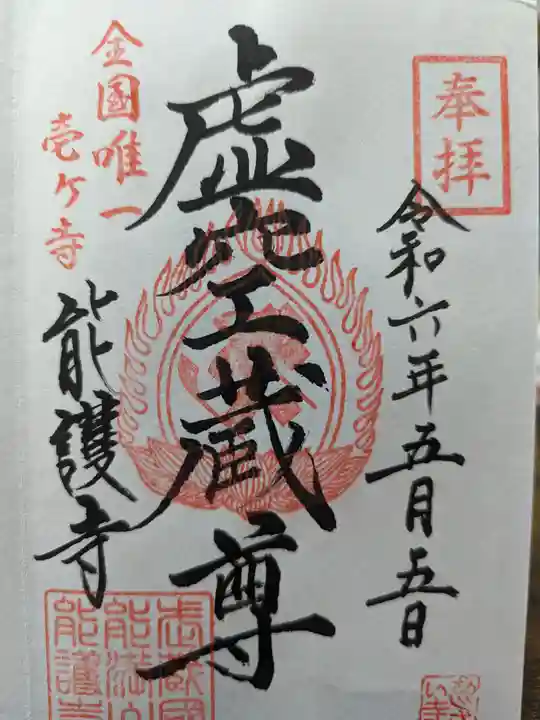 奉拝
令和六年五月五日
虚空蔵尊
全國唯一
壱ヶ寺
能護寺
武蔵國
能満山
能護寺